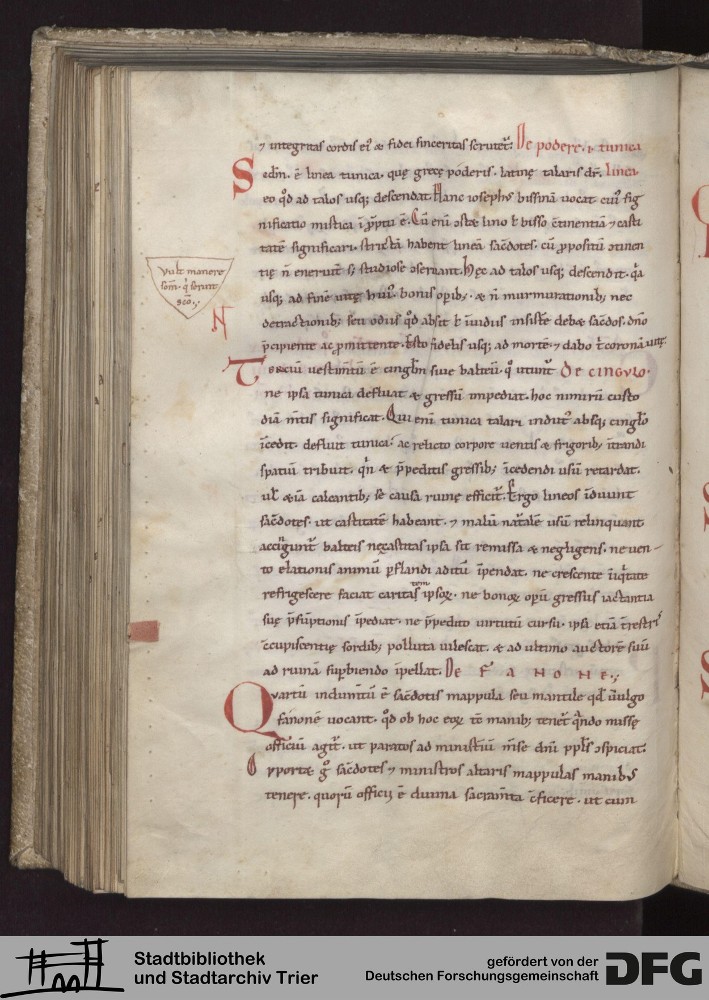 ⁊ integritas cordis eiꝰ & fidei sinceritas scrutet᷑. De podere .i. tunica
Scd̄m. ē linea tunica. quę grecę poderis. latinę talaris dr̄. linea.
eo qđ ad talos usq; descendat. Hanc iosephꝰ bissinā uocat
nificatio mistica ī prōptu ē. Cū eni
tatē significari. strictā habent lineā sac̄dotes. cū ꝓpositū
tię n̄ eneruit s; studiose obseruant. Hęc ad talos usq; descendit. q̇a
usq; ad finē uitę huiꝰ bonis oꝑib;. & n̄ murmurationib; nec
detractionib; seu odiis qđ absit ł inuidiis insistere debet sac̄dos. dn̄o
p̄cipiente ac ꝓmittente. Esto fidelis usq; ad mortē. ⁊ dabo t̄ coronā uitę.
Tercium uestim̄tū ē cinglm̄ siue balteū. q̊ utunt᷑ De cingulo.
ne ipsa tunica defluat & gressū impediat. hoc nimirū custo
diā m̄tis significat. Qui eni tunica talari indutꝰ absq; cinglo
īcedit. defluit tunica. ac relicto corpore uentis & frigorib; ītrandi
spatiū tribuit. & p̄peditis gressib; īcedendi usū retardat.
uł &iā calcantib; se causa ruinę efficit᷑. Ergo lineos īduunt
sac̄dotes. ut castitatē habeant. ⁊ malū nat᷑ale usū relinquant
accīgunt᷑ balteis ne castitas ipsa sit remissa & negligens. ne uen-
to elationis animū ꝑflandi aditū īpendat. ne crescente īiq̇tate
refrigescere faciat caritatem ipsoꝝ. ne bonoꝝ opū gressus iactantia
suę p̄sūptionis īpediat. ne p̄pedito uirtutū cursu. ipsi etiā t̄restri
c̄cupiscentię sordib; polluta uilescat. & ad ultimo auctorē suū
ad ruinā suꝑbiendo īpellat. De FANONE.;
Quartū indumtū ē sac̄dotis mappula seu mantile qđ uulgo
fanonē uocant. qđ ob hoc eoꝝ tē manib; tenet᷑ q̄ndo missę
officiū agit᷑. ut paratos ad ministiū m̄se dn̄i ppl̄s ɔspiciat.
Oportet g̊ sac̄dotes ⁊ ministros altaris mappulas manibꝰ
tenere. quorū officiū ē diuina sacram̄ta c̄ficere. ut cum
Vult manere
N
Stadtbibliothek
und Stadtarchiv Trier
gefördert von der
Deutschen Forschungsgemeinschaft
DFG